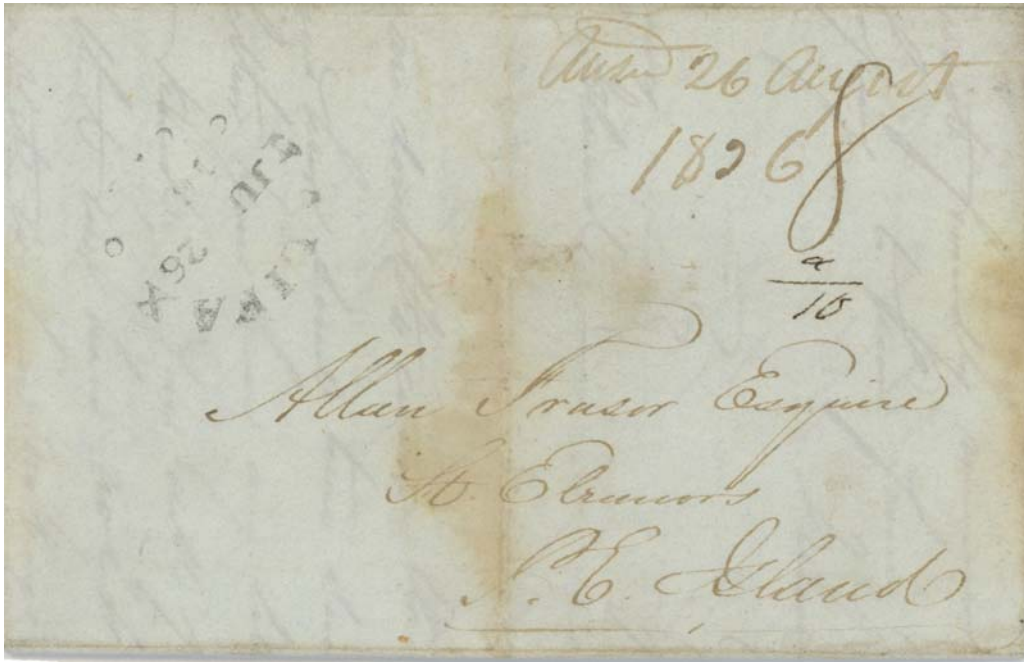 Ansd 26 August
1826
8
d
10
JU 26
IFAX
Allan Fraser Esquire
St. Eleanors
P. E. Island